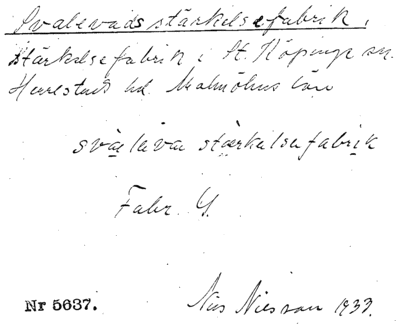 Svalevads stärkelsefabrik,
stärkelsefabrik i St. Köpinge sn.
Herrestads hd Malmöhus län
svalava stärkalsefabrik
Fabr. Y.
Nr 5637.
Nils Nilsson 1933.